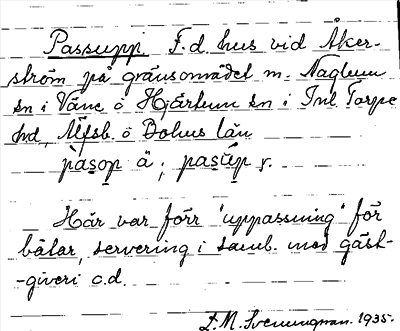 Passupp. F.d. hus vid Åker-
ström på gränsområdet m. Naglum
sn i Väne o Hjärtum sn i Inl. Torpe
hd, Älfsb. o Bohus län
pàsop ä; pasúp y.
Här var förr 'uppassning' för
båtar, servering i samb. med gäst-
-giveri o.d.
Z.M. Svenungsson. 1935.